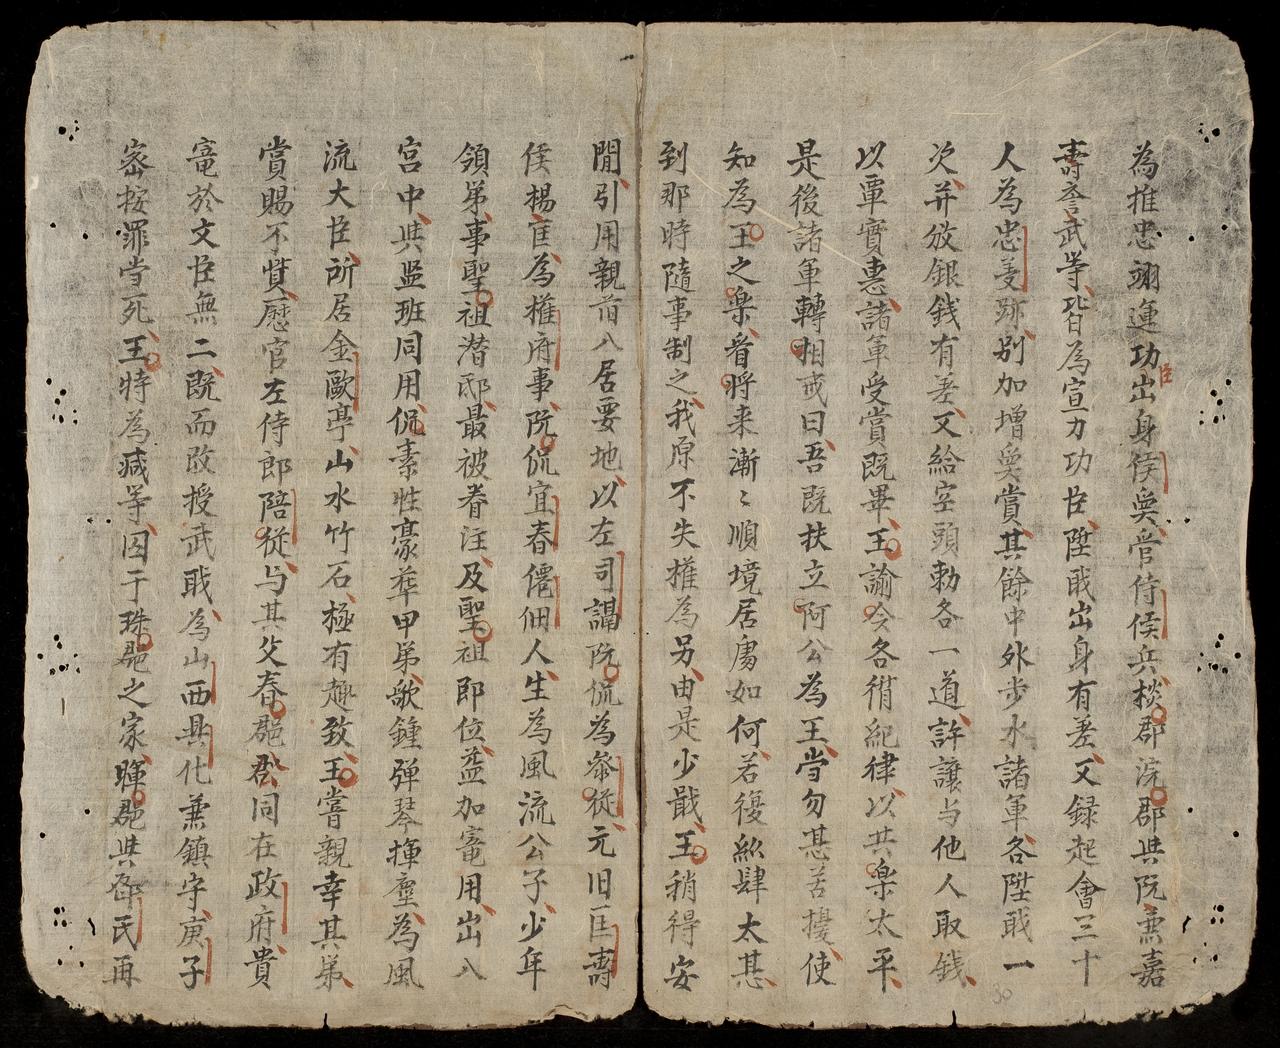 為推忠翊運功臣出身侯吳管侍侯兵棪郡浣郡與阮兼嘉
壽誉武等皆為宣力功臣陞戢出身有差又録起會三十
人為忠義跡別加增奨賞其餘中外步水諸軍各陞戢一
次并放銀錢有差又給空頭勅各一道許讓与他人取錢
以單實惠諸軍受賞既畢王諭令各循紀律以共楽太平
是後諸軍轉相戒曰吾既扶立阿公為王當勿甚苦擾使
知為王之楽看將来漸〻順境居處如何若復縱肆太甚
到那時隨事制之我原不失權為另由是少戢王稍得安
閒引用親旧入居要地以左司謁阮侃為叅從元旧匡壽
侯楊匡為權府事阮侃宜春僊佃人生為風流公子少年
領弟事聖祖潜邸最被眷注及聖祖即位益加寵用出入
宮中與監班同用侃素性豪華甲弟歌鍾弾琴揮麈為風
流大臣所居金歐亭山水竹石極有趣致王嘗親幸其弟
賞賜不貲歷官左侍郎陪從与其父春郡公同在政府貴
寵於文臣無二既而改授武戢為山西興化兼鎮守庚子
宻按罪當死王特為减等囚于珠郡之家暉郡與卲民再